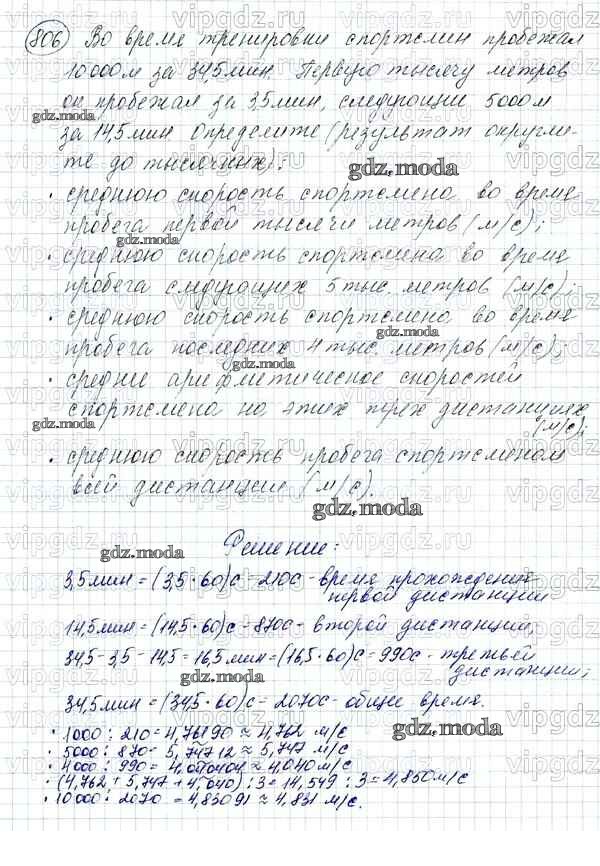 806 Во время тренировки спортсмен пробежал
10000м за 34,5мин. Первую тысячу метров
он пробежал за 3,5мин, следующие 5000м
за 14,5мин Определите (результат округли-
те до тысячных):
• среднюю скорость спортсмена во время
пробега первой тысячи метров (м/с);
• среднюю скорость спортсмена во время
пробега следующих 5тыс. метров (м/с);
• среднюю скорость спортсмена во время
пробега последних 4тыс. метров (м/с);
• среднее арифметическое скоростей
спортсмена на этих трех дистанциях
(м/с);
• среднюю скорость пробега спортсменом
всей дистанции (м/с).
Решение:
3,5мин = (3,5·60)с = 210с - время прохождения
первой дистанции
14,5мин = (14,5·60)с = 870с - второй дистанции;
34,5-3,5-14,5=16,5мин=(16,5·60)с=990с - третьей
дистанции;
34,5мин = (34,5·60)с = 2070с - общее время.
• 1000 : 210 = 4,76190 ≈ 4,762 м/с
• 5000 : 870 = 5,74712 ≈ 5,747 м/с
• 4000 : 990 = 4,040404 ≈ 4,040м/с
• (4,762 + 5,747 + 4,040) : 3 = 14,549 : 3 = 4,850м/с
• 10000 : 2070 = 4,83091 ≈ 4,831 м/с.
gdz.moda
vipgdz.ru